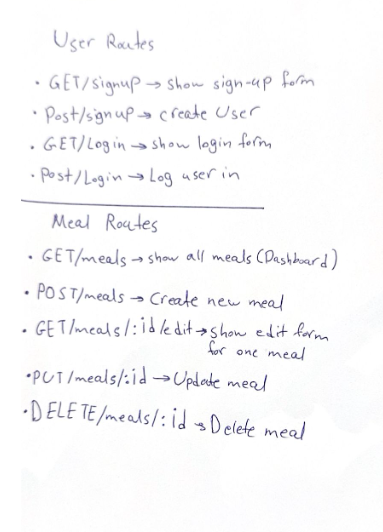 User Routes
• GET/signup → show sign-up form
• Post/signup → create User
• GET/Login → show login form
• Post/Login → Log user in
Meal Routes
• GET/meals → show all meals (Dashboard)
• POST/meals → Create new meal
• GET/meals/:id/edit → Show edit form
for one meal
• PUT/meals/:id → Update meal
• DELETE/meals/:id → Delete meal